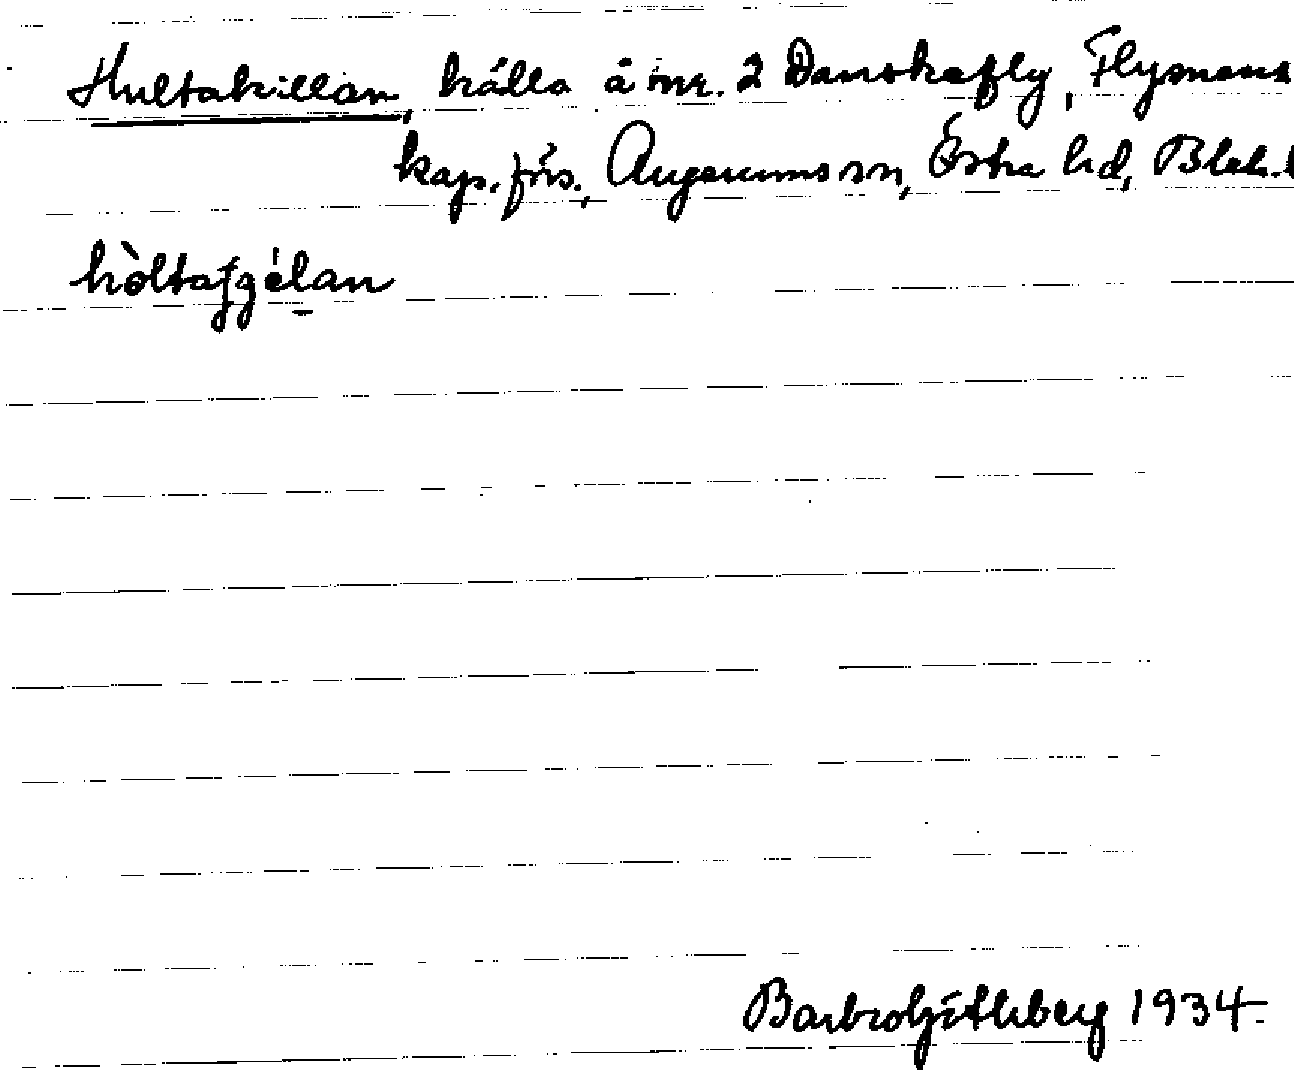 Hultakillan, källa å nr. 2 Danskafly, Flymens
kap. förs., Augerums sn, Östra hd, Blek.
hòltaʃgélan
Barbro Götherberg 1934